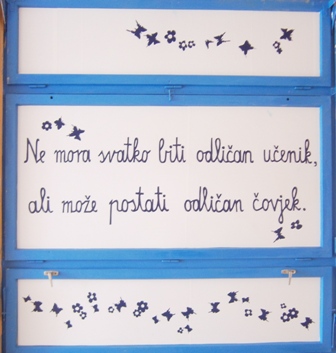 Ne mora svatko biti odličan učenik,
ali može postati odličan čovjek.